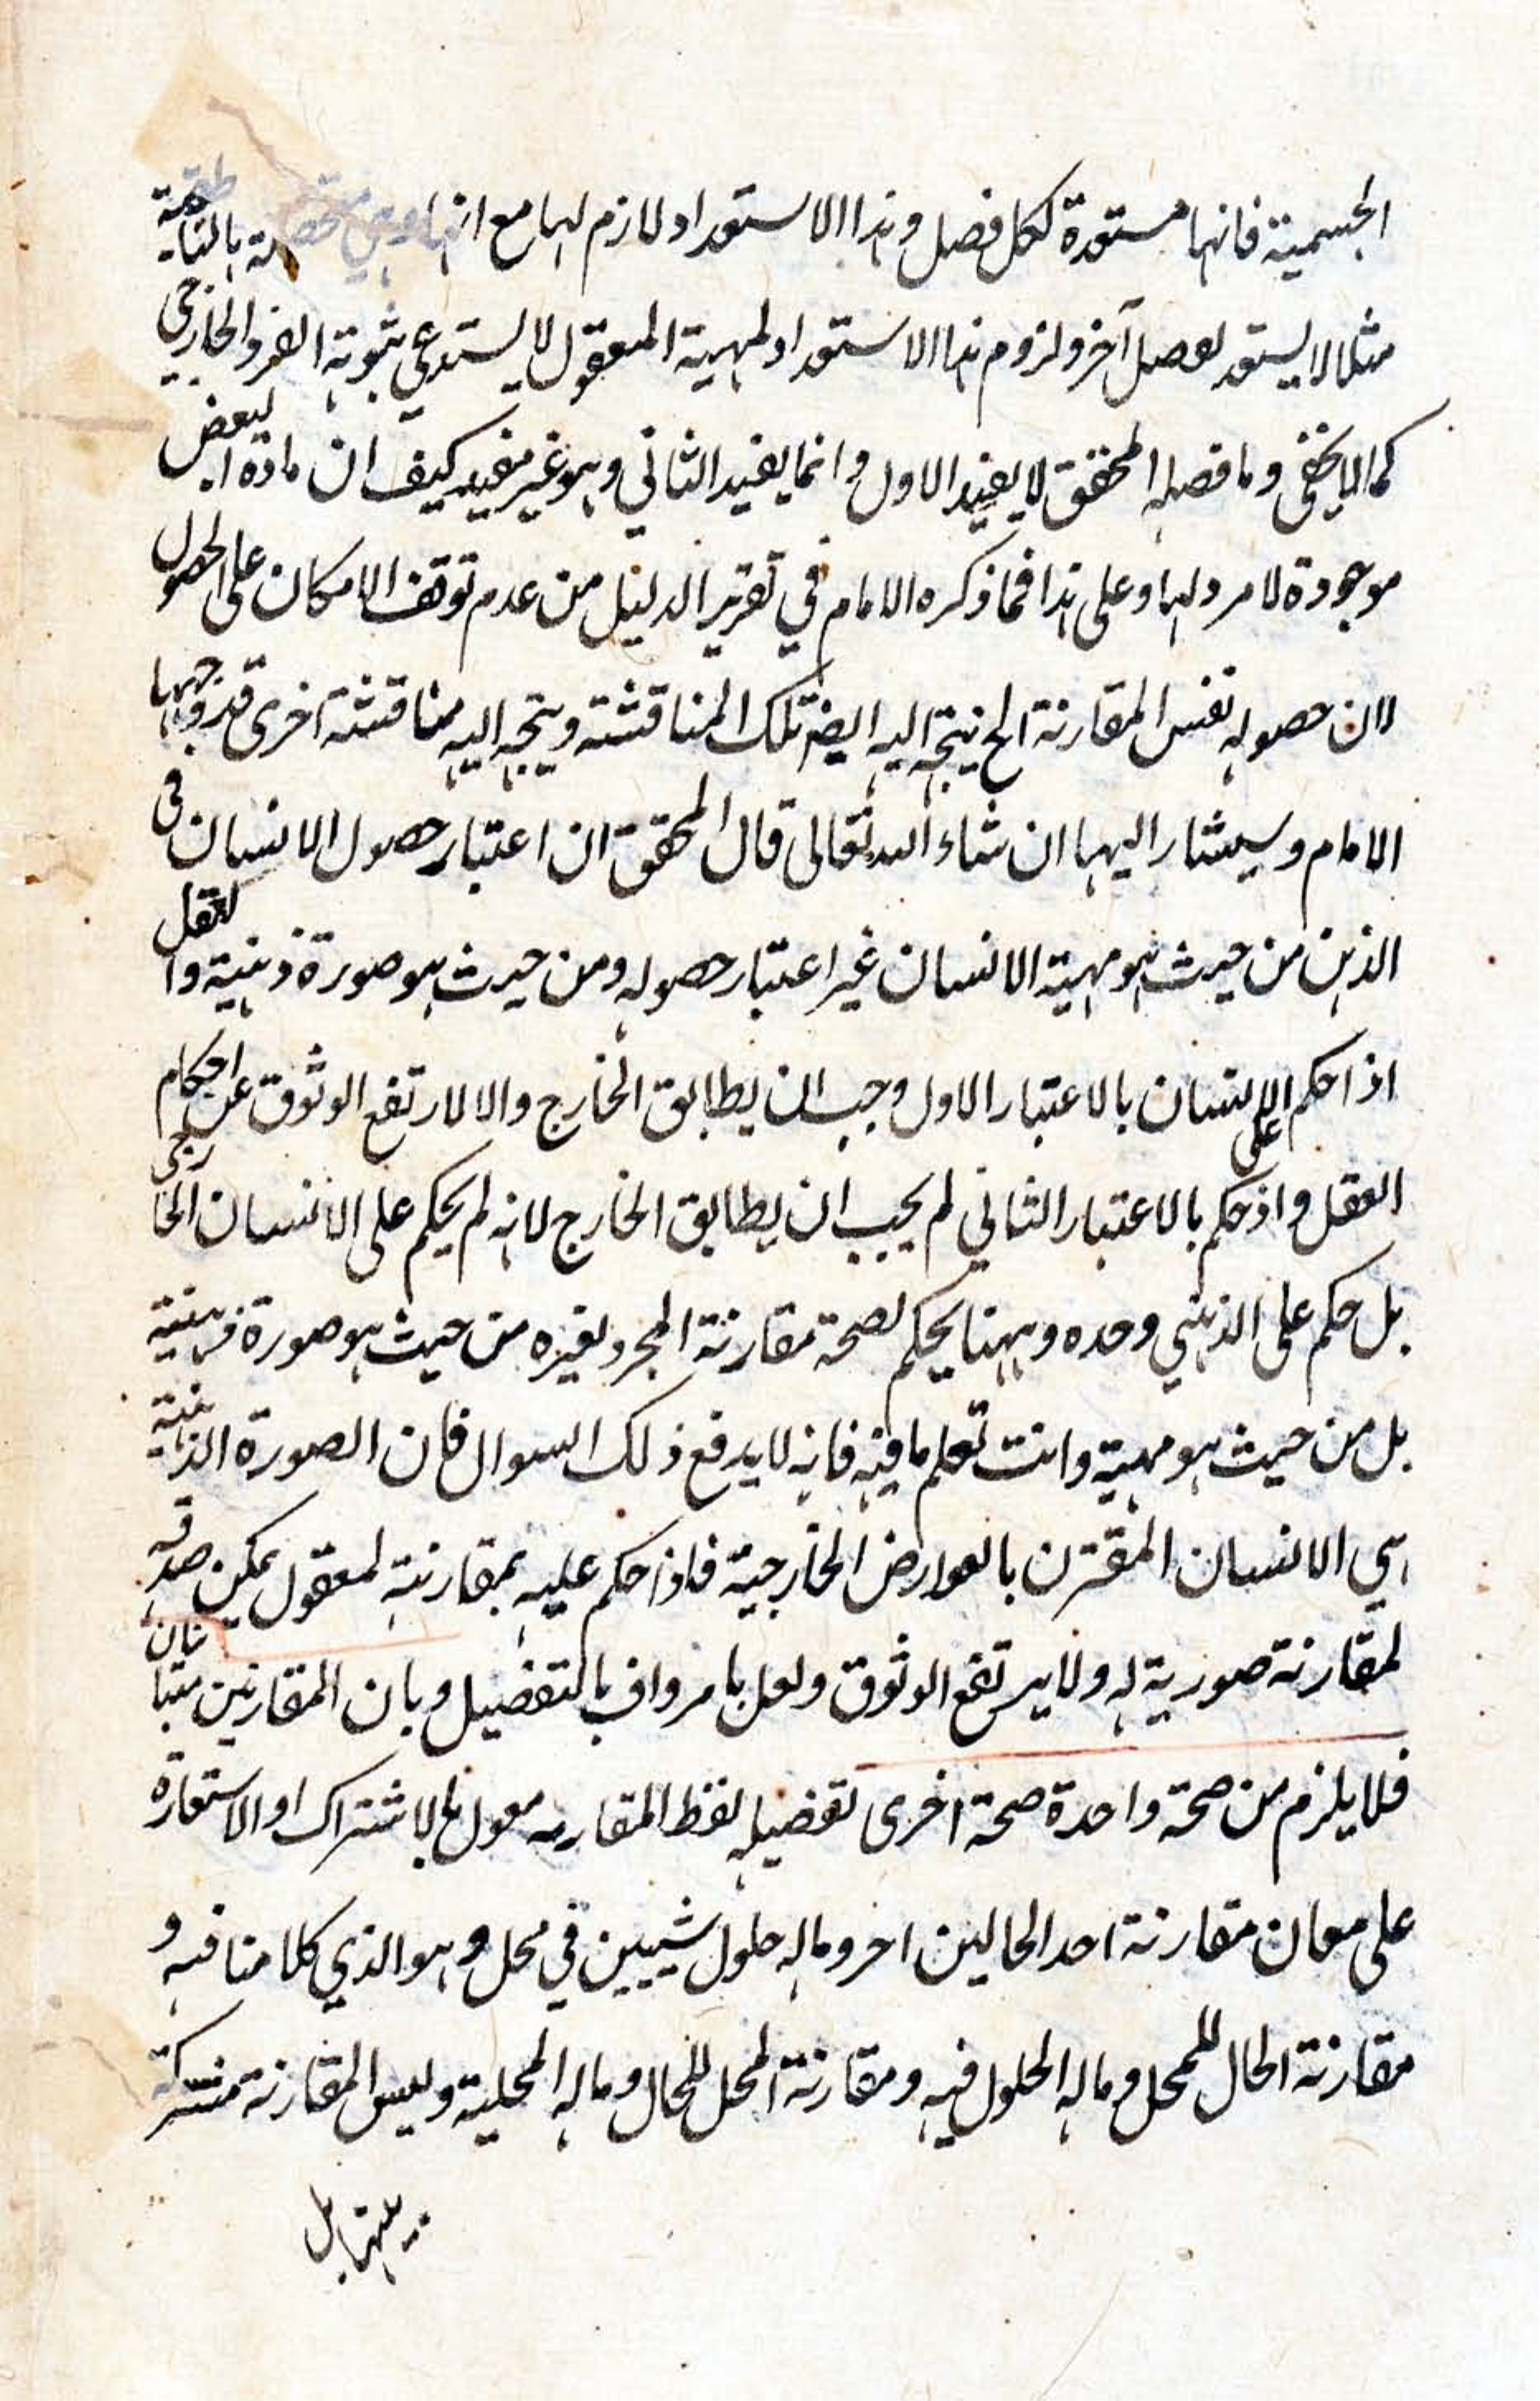 الجسمية فانها مستعدة لكل فصل وهذا الاستعداد لازم لها مع انها بالناطقية
مثلا لا يستعد لفصل آخر ولزوم هذا الاستعداد لمهية المعقول لا يستدعي ثبوته الفرد الخارجي
كما لا يخفى وما فصله المحقق لا يفيد الاول وانما يفيد الثاني وهو غير مفيد كيف ان مادة البعض
موجودة لا مرد لها وعلى هذا فما ذكره الامام في تقرير الدليل من عدم توقف الامكان على الحصول
لان حصوله نفس المقارنة الخ يتجه اليه ايضا تلك المناقشة ويتجه اليه مناقشة اخرى قد وجهها
الامام وسيشار اليها ان شاء الله تعالى قال المحقق ان اعتبار حصول الانسان في
الذهن من حيث هو مهية الانسان غير اعتبار حصوله ومن حيث هو صورة ذهنية والعقل
اذا حكم على الانسان بالاعتبار الاول وجب ان يطابق الخارج والا لارتفع الوثوق عن احكام
العقل واذ حكم بالاعتبار الثاني لم يجب ان يطابق الخارج لانه لم يحكم على الانسان الخارجي
بل حكم على الذهني وحده وههنا يحكم لصحة مقارنة المجرد لغيره من حيث هو صورة ذهنية
بل من حيث هو مهية وانت تعلم ما فيه فانه لا يدفع ذلك السوال فان الصورة الذهنية
هي الانسان المقترن بالعوارض الخارجية فاذا حكم عليه بمقارنته لمعقول يمكن صدقه
لمقارنة صورية له ولا يرتفع الوثوق ولعل ما مر واف بالتفصيل وبان المقارنين متباينان
فلا يلزم من صحة واحدة صحة اخرى تفصيله لفظ المقارنه مقول بالاشتراك او الاستعارة
على معان مقارنة احد الحالين اخر وماله حلول شيئين في محل وهو الذي كلامنا فيه و
مقارنة الحال للمحل وماله الحلول فيه ومقارنة المحل للحال وماله المحلية وليس المقارنة مشتركة
بينها بل